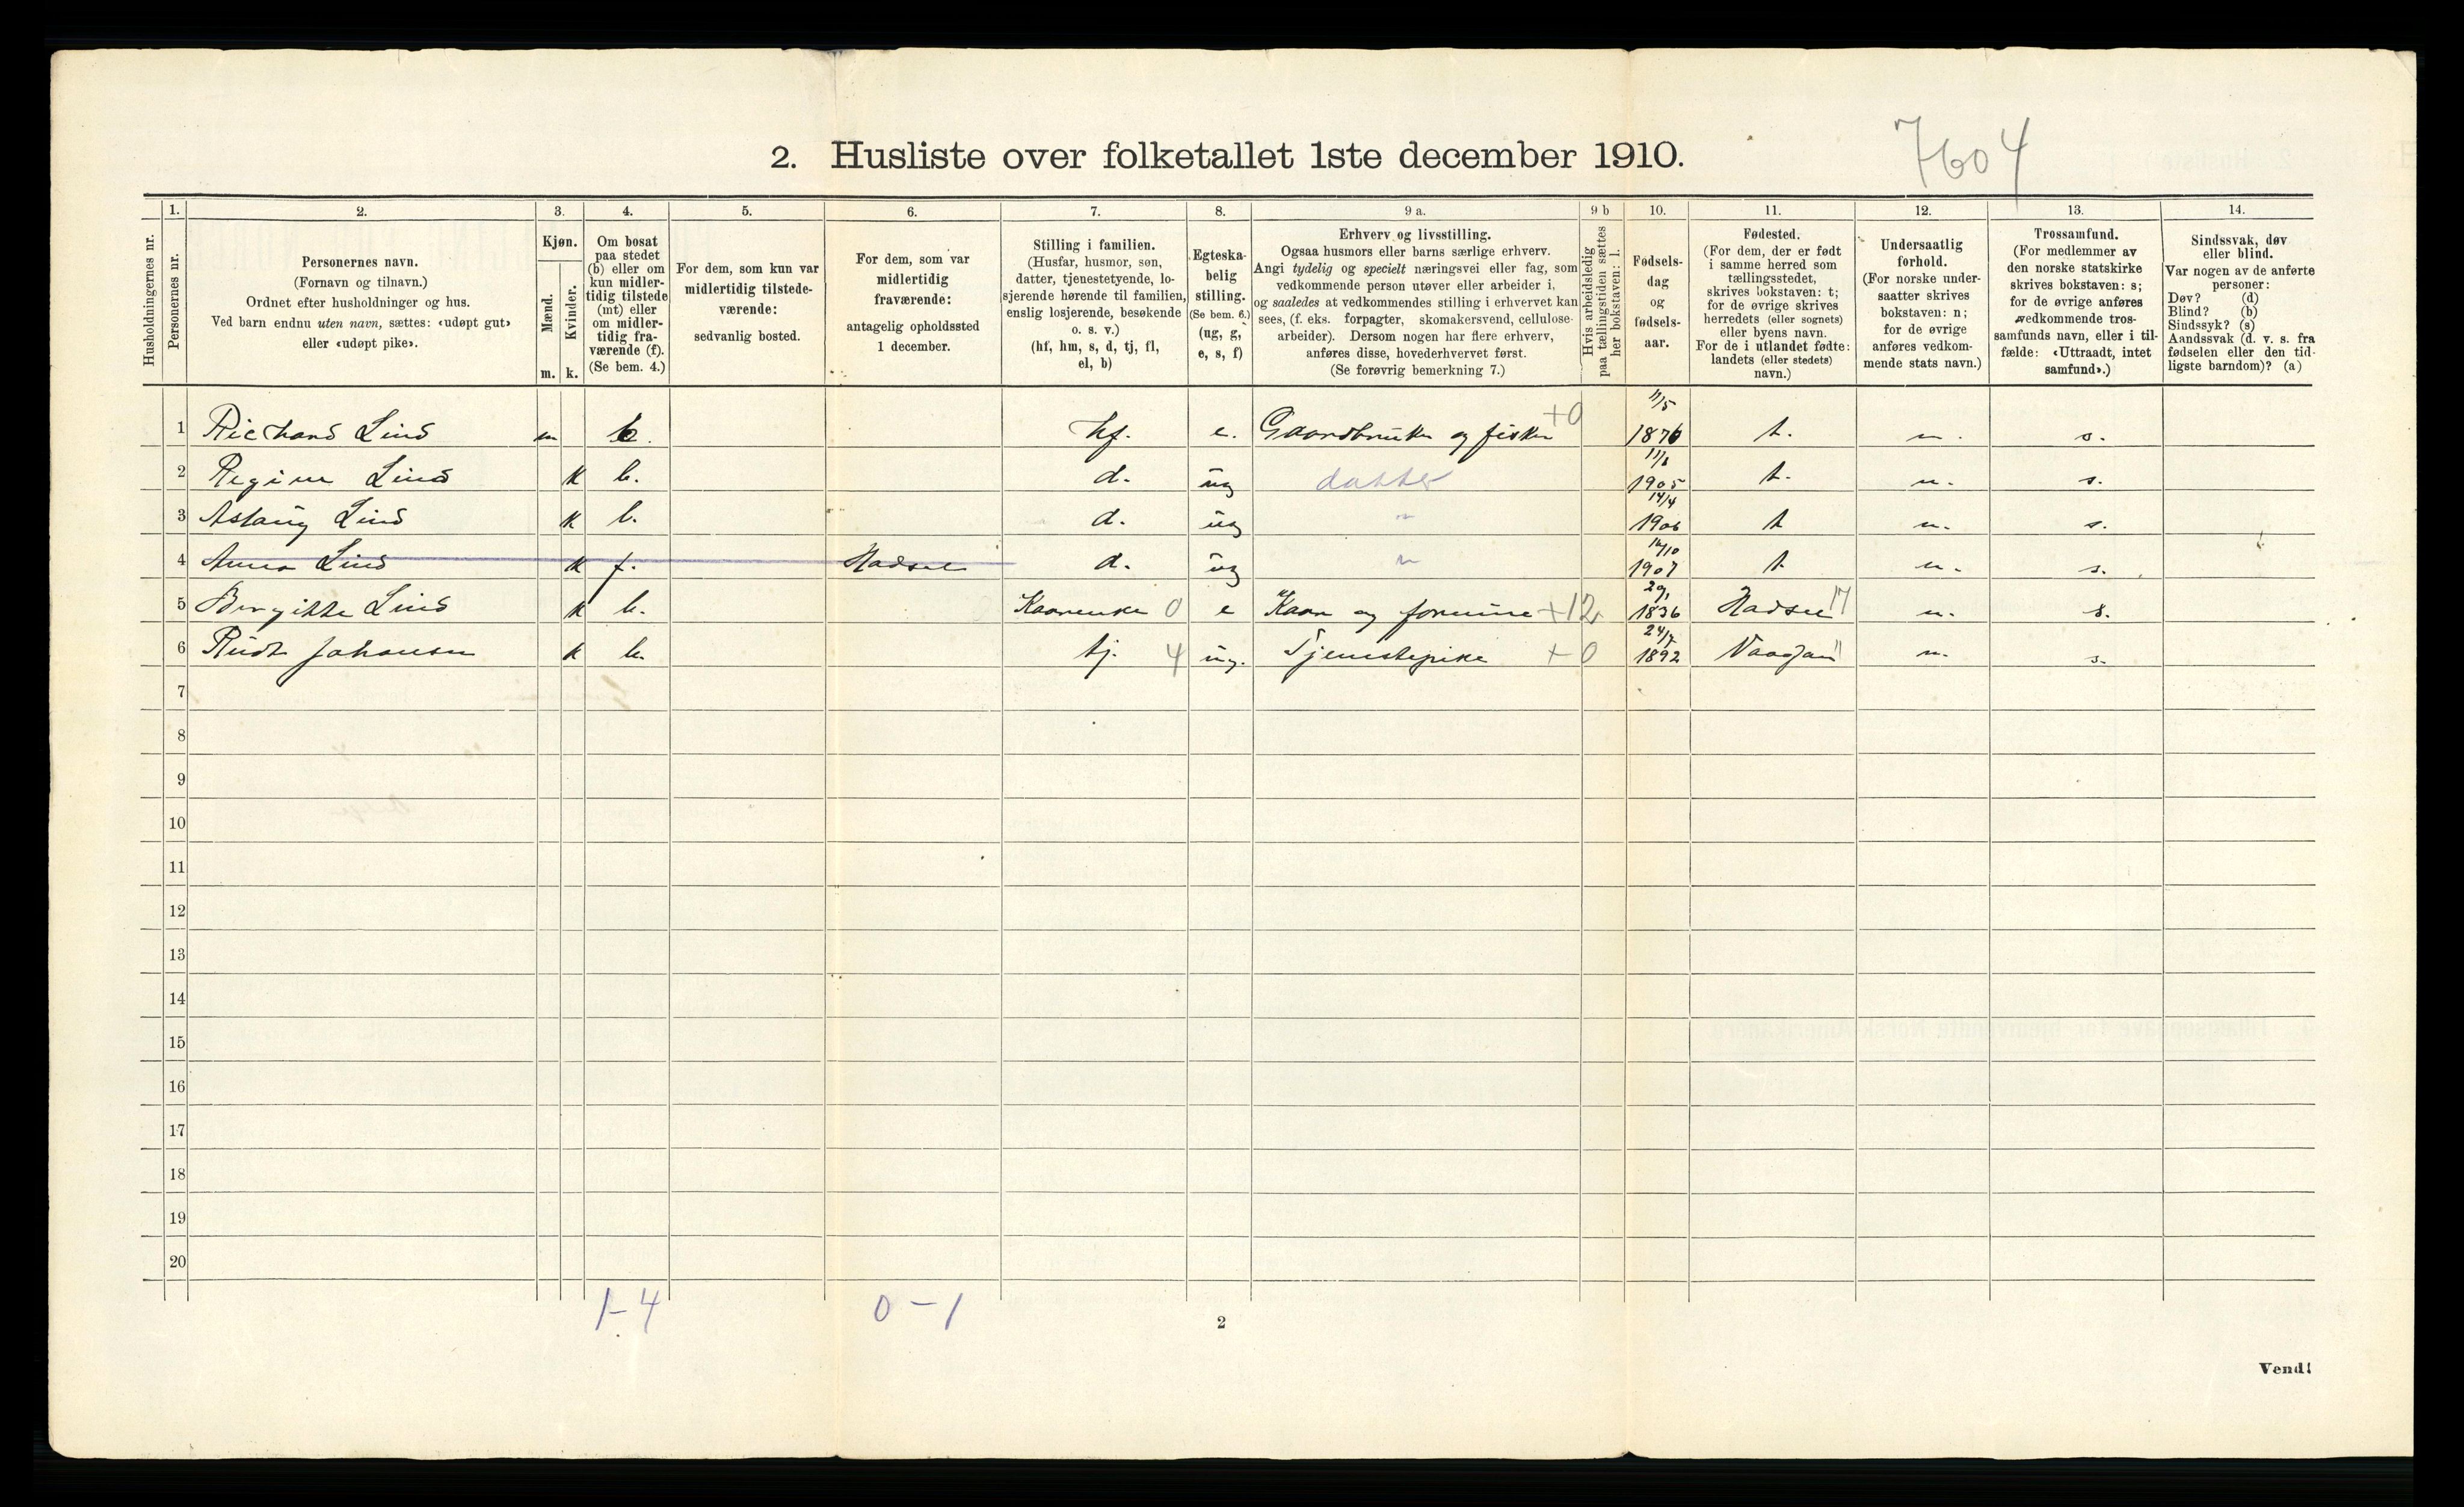 7604
2. Husliste over folketallet 1ste december 1910.
Husholdningernes nr.
1.
Personernes nr.
2.
Personernes navn.
(Fornavn og tilnavn.)
Ordnet efter husholdninger og hus.
Ved barn endnu uten navn, sættes: «udøpt gut»
eller «udøpt pike».
3.
Kjøn.
Mænd.
Kvinder.
m. k.
4.
Om bosat
paa stedet
(b) eller om
kun midler-
tidig tilstede
(mt) eller
om midler-
tidig fra-
værende (f).
(Se bem. 4.)
5.
For dem, som kun var
midlertidig tilstede-
værende:
sedvanlig bosted.
6.
For dem, som var
midlertidig
fraværende:
antagelig opholdssted
1 december.
7.
Stilling i familien.
(Husfar, husmor, søn,
datter, tjenestetyende, lo-
sjerende hørende til familien,
enslig losjerende, besøkende
o. s. v.)
(hf, hm, s, d, tj, fl,
el, b)
8.
Egteska-
belig
stilling.
(Se bem. 6.)
(ug, g,
e, s, f)
9 a.
Erhverv og livsstilling.
Ogsaa husmors eller barns særlige erhverv.
Angi tydelig og specielt næringsvei eller fag, som
vedkommende person utøver eller arbeider i,
og saaledes at vedkommendes stilling i erhvervet kan
sees, (f. eks. forpagter, skomakersvend, cellulose-
arbeider). Dersom nogen har flere erhverv,
anføres disse, hovederhvervet først.
(Se forøvrig bemerkning 7.)
9 b
Hvis arbeidsledig
paa tællingstiden sættes
her bokstaven: l.
10.
Fødsels-
dag
og
fødsels-
aar.
11.
Fødested.
(For dem, der er født
i samme herred som
tællingsstedet,
skrives bokstaven: t;
for de øvrige skrives
herredets (eller sognets)
eller byens navn.
For de i utlandet fødte:
landets (eller stedets)
navn.)
12.
Undersaatlig
forhold.
(For norske under-
saatter skrives
bokstaven: n;
for de øvrige
anføres vedkom-
mende stats navn.)
13.
Trossamfund.
(For medlemmer av
den norske statskirke
skrives bokstaven: s;
for de øvrige anføres
vedkommende tros-
samfunds navn, eller i til-
fælde: «Uttraadt, intet
samfund».)
14.
Sindssvak, døv
eller blind.
Var nogen av de anførte
personer:
Døv? (d)
Blind? (b)
Sindssyk? (s)
Aandssvak (d. v. s. fra
fødselen eller den tid-
ligste barndom)? (a)
1 Richard Lind m b. hf. e. Gaardbruker og fisker +0 11/5 1876 t. n. s.
2 Regine Lind k b. d. ug datter 1905 t. n. s.
3 Aslaug Lind k b. d. ug " 14/4 1906 t n. s.
4 Anna Lind k f. Hadsel d. ug " 1907 t n. s.
5 Birgitte Lind k b. Kaarenke 0 e Kaar og formue +12 1836 Hadsel 17 n. s.
6 Rudt Johansen k b. tj. 4 ug. Tjenestepike +0 24/7 1892 Vaagan n. s.
7
8
9
10
11
12
13
14
15
16
17
18
19
20
1-4 0-1
2
Vend!